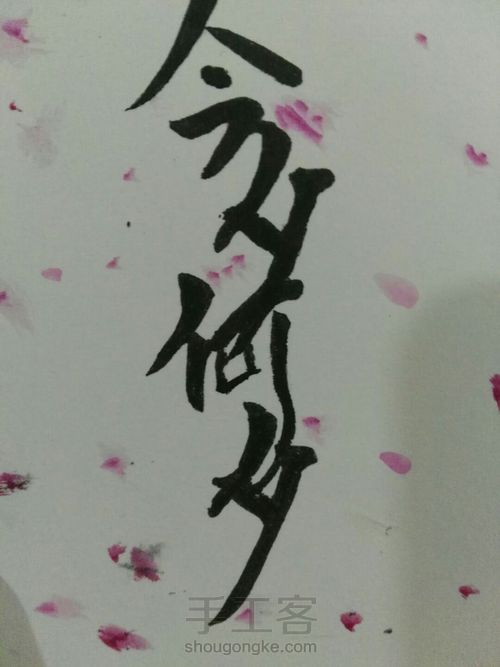 今夕何夕
手工客
shougongke.com